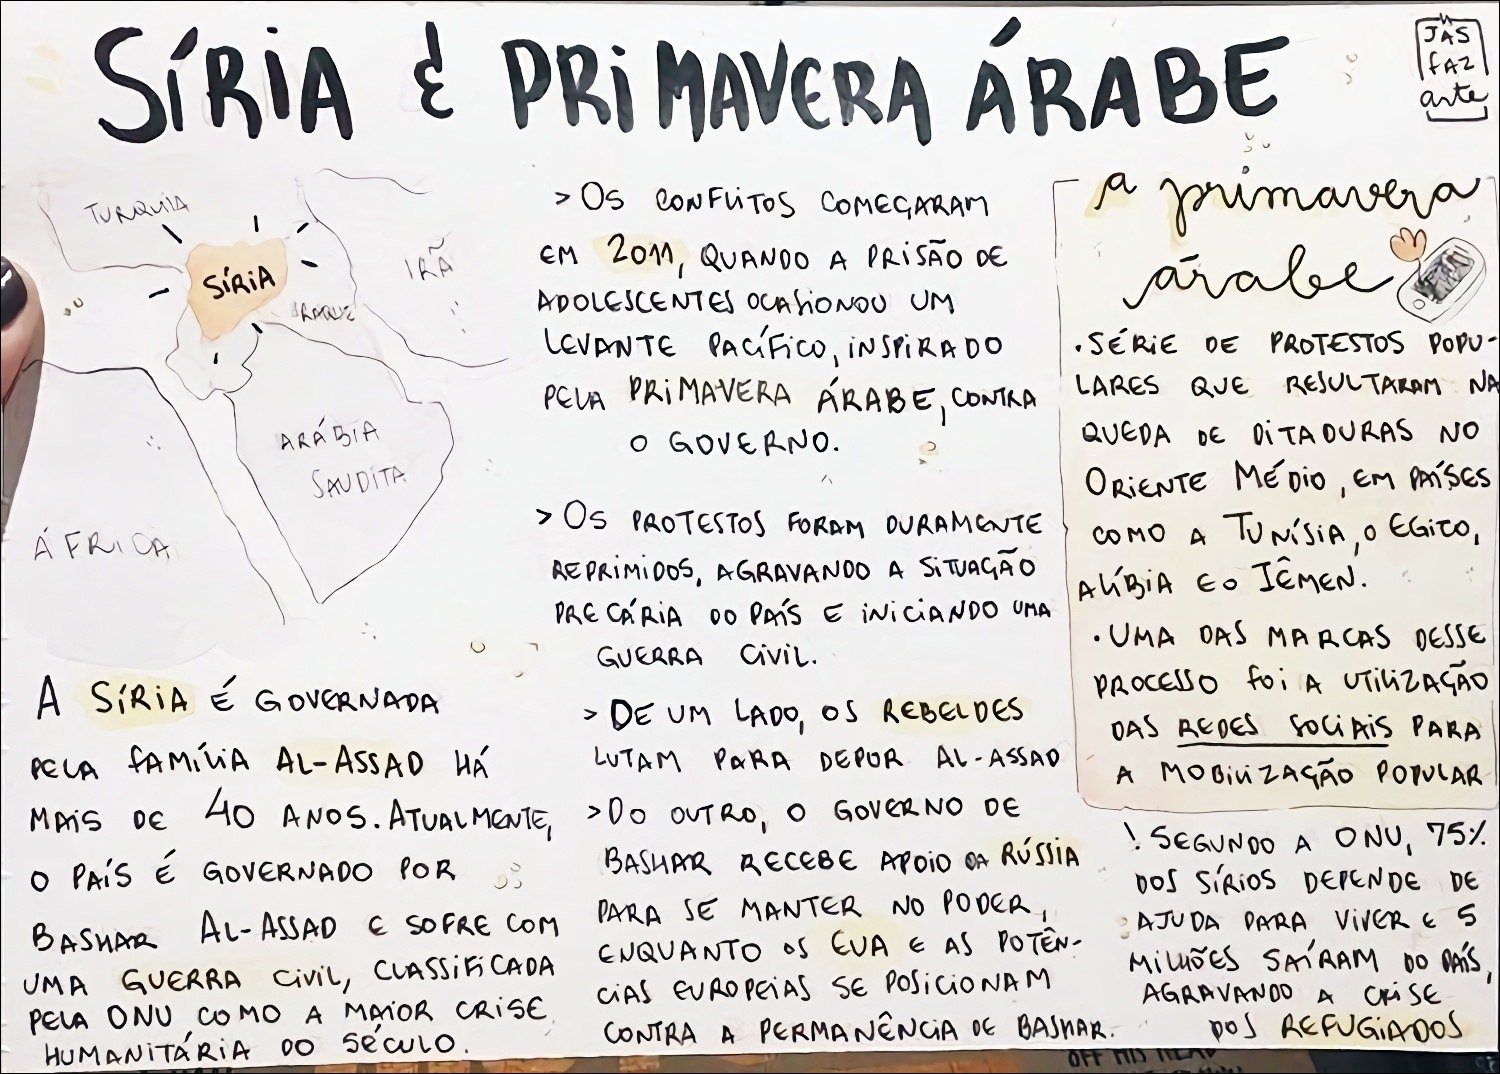 SÍRIA & PRIMAVERA ÁRABE
JAS
FAZ
arte
TURQUIA
SÍRIA
IRÃ
IRAQUE
ARÁBIA
SAUDITA
ÁFRICA
A SÍRIA É GOVERNADA
PELA FAMÍLIA AL-ASSAD HÁ
MAIS DE 40 ANOS. ATUALMENTE,
O PAÍS É GOVERNADO POR
BASHAR AL-ASSAD E SOFRE COM
UMA GUERRA CIVIL, CLASSIFICADA
PELA ONU COMO A MAIOR CRISE
HUMANITÁRIA DO SÉCULO.
> OS CONFLITOS COMEÇARAM
EM 2011, QUANDO A PRISÃO DE
ADOLESCENTES OCASIONOU UM
LEVANTE PACÍFICO, INSPIRADO
PELA PRIMAVERA ÁRABE, CONTRA
O GOVERNO.
> OS PROTESTOS FORAM DURAMENTE
REPRIMIDOS, AGRAVANDO A SITUAÇÃO
PRECÁRIA DO PAÍS E INICIANDO UMA
GUERRA CIVIL.
> DE UM LADO, OS REBELDES
LUTAM PARA DEPOR AL-ASSAD
> DO OUTRO, O GOVERNO DE
BASHAR RECEBE APOIO DA RÚSSIA
PARA SE MANTER NO PODER,
ENQUANTO OS EUA E AS POTÊN-
CIAS EUROPEIAS SE POSICIONAM
CONTRA A PERMANÊNCIA DE BASHAR.
a primavera
árabe
• SÉRIE DE PROTESTOS POPU-
LARES QUE RESULTARAM NA
QUEDA DE DITADURAS NO
ORIENTE MÉDIO, EM PAÍSES
COMO A TUNÍSIA, O EGITO,
A LÍBIA E O IÊMEN.
• UMA DAS MARCAS DESSE
PROCESSO FOI A UTILIZAÇÃO
DAS REDES SOCIAIS PARA
A MOBILIZAÇÃO POPULAR
! SEGUNDO A ONU, 75%
DOS SÍRIOS DEPENDE DE
AJUDA PARA VIVER E 5
MILHÕES SAÍRAM DO PAÍS,
AGRAVANDO A CRISE
DOS REFUGIADOS
OFF HIS HEAD